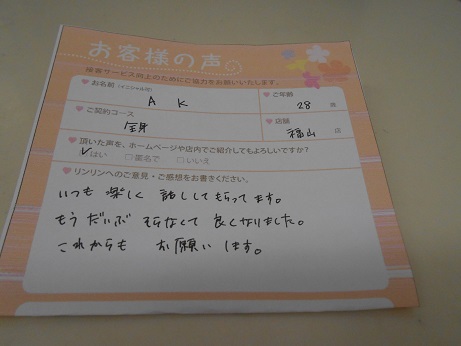 お客様の声
接客サービス向上のためにご協力をお願いいたします。
お名前(イニシャル可)
A K
ご年齢
28 歳
ご契約コース
全身
店舗
福山 店
頂いた声を、ホームページや店内でご紹介してもよろしいですか?
はい □匿名で □いいえ
リンリンへのご意見・ご感想をお書きください。
いつも 楽しく 話ししてもらってます。
もう だいぶ そらなくて 良くなりました。
これからも お願いします。